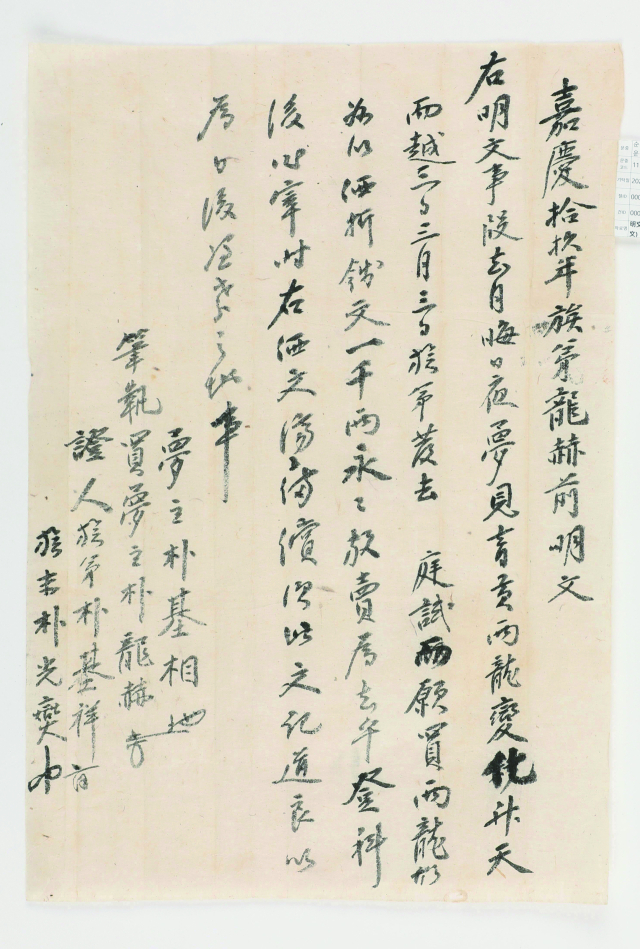 嘉慶拾玖年族弟龍赫前明文
右明文事段去月晦日夜夢見靑黃兩龍變化升天
而越三日三月三日族弟發去 庭試而願買兩龍故
以価折錢文一千兩永〻放賣爲去乎登科
後 宰時右価文備 償 此文記導良以
爲日後憑考之地事
夢主朴基相
筆執買夢主朴龍赫
證人族弟朴基祥
族末朴光燮